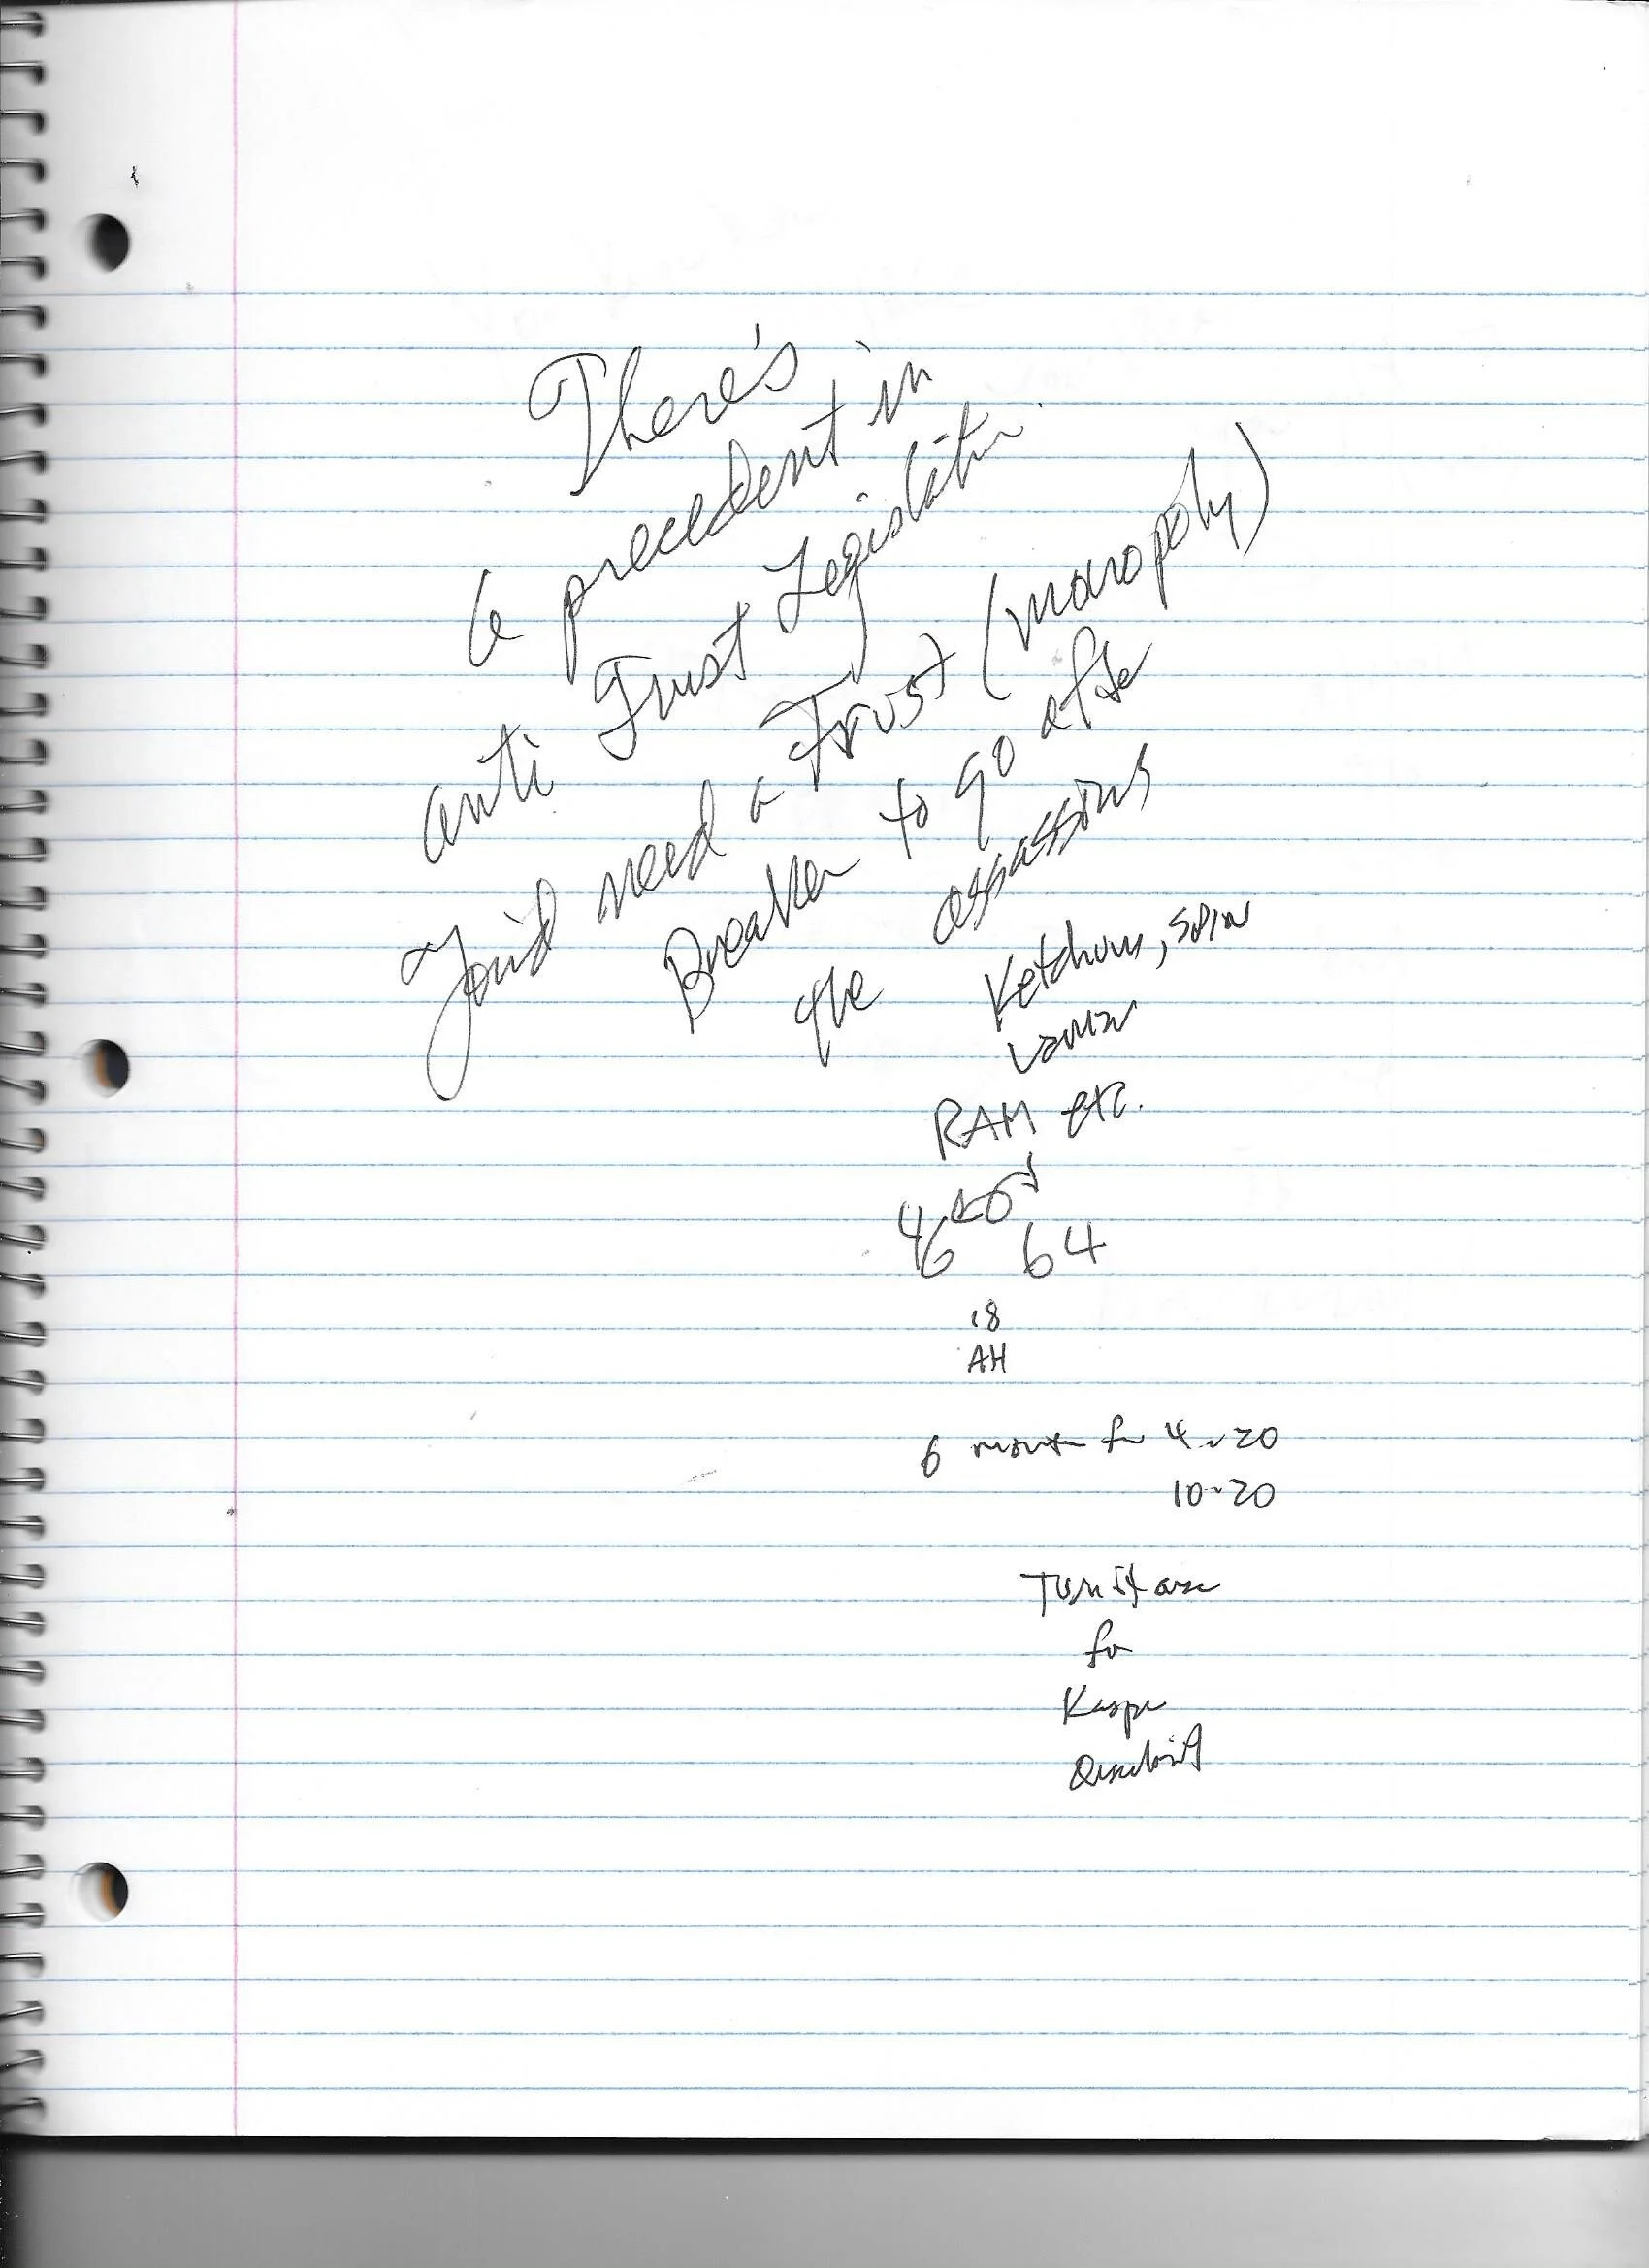 There's
a precedent in
anti Trust Legislation.
You'd need a Trust (monopoly)
Breaker to go after
the assassins
Ketchum, spin
RAM etc.
46 64
18
AH
6 month for 4 20
10-20
Turn
for